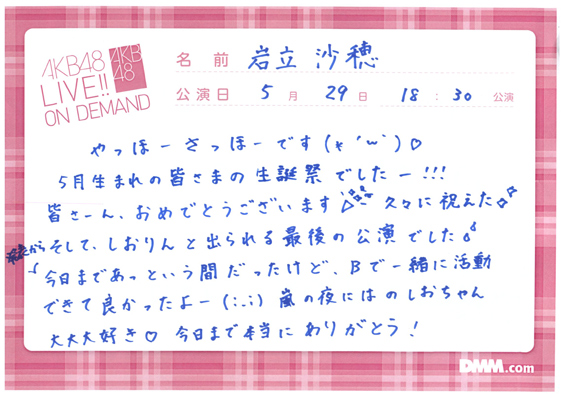 AKB48
LIVE!!
ON DEMAND
AKB
48
名前 岩立 沙穂
公演日 5月 29日 18:30 公演
やっほーさっほーです(*'ω'`)♡
5月生まれの皆さまの生誕祭でしたー!!!
皆さーん、おめでとうございます 久々に祝えた
そして、しおりんと出られる最後の公演でした
今日まであっという間だったけど、Bで一緒に活動
できて良かったよー(:_;) 嵐の夜にはのしおちゃん
大大大好き♡ 今日まで本当にありがとう!
DMM.com